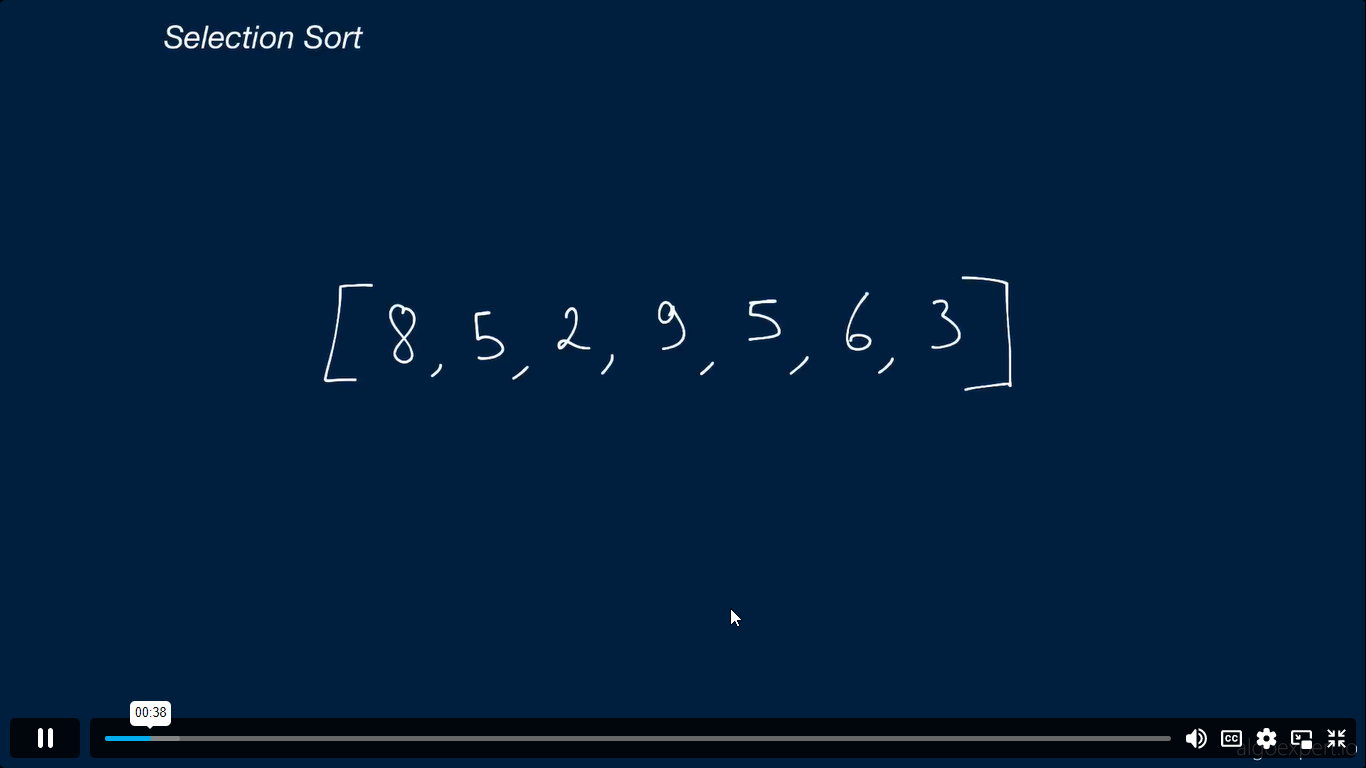 Selection Sort
[8, 5, 2, 9, 5, 6, 3]
00:38
CC
algoexpert.io